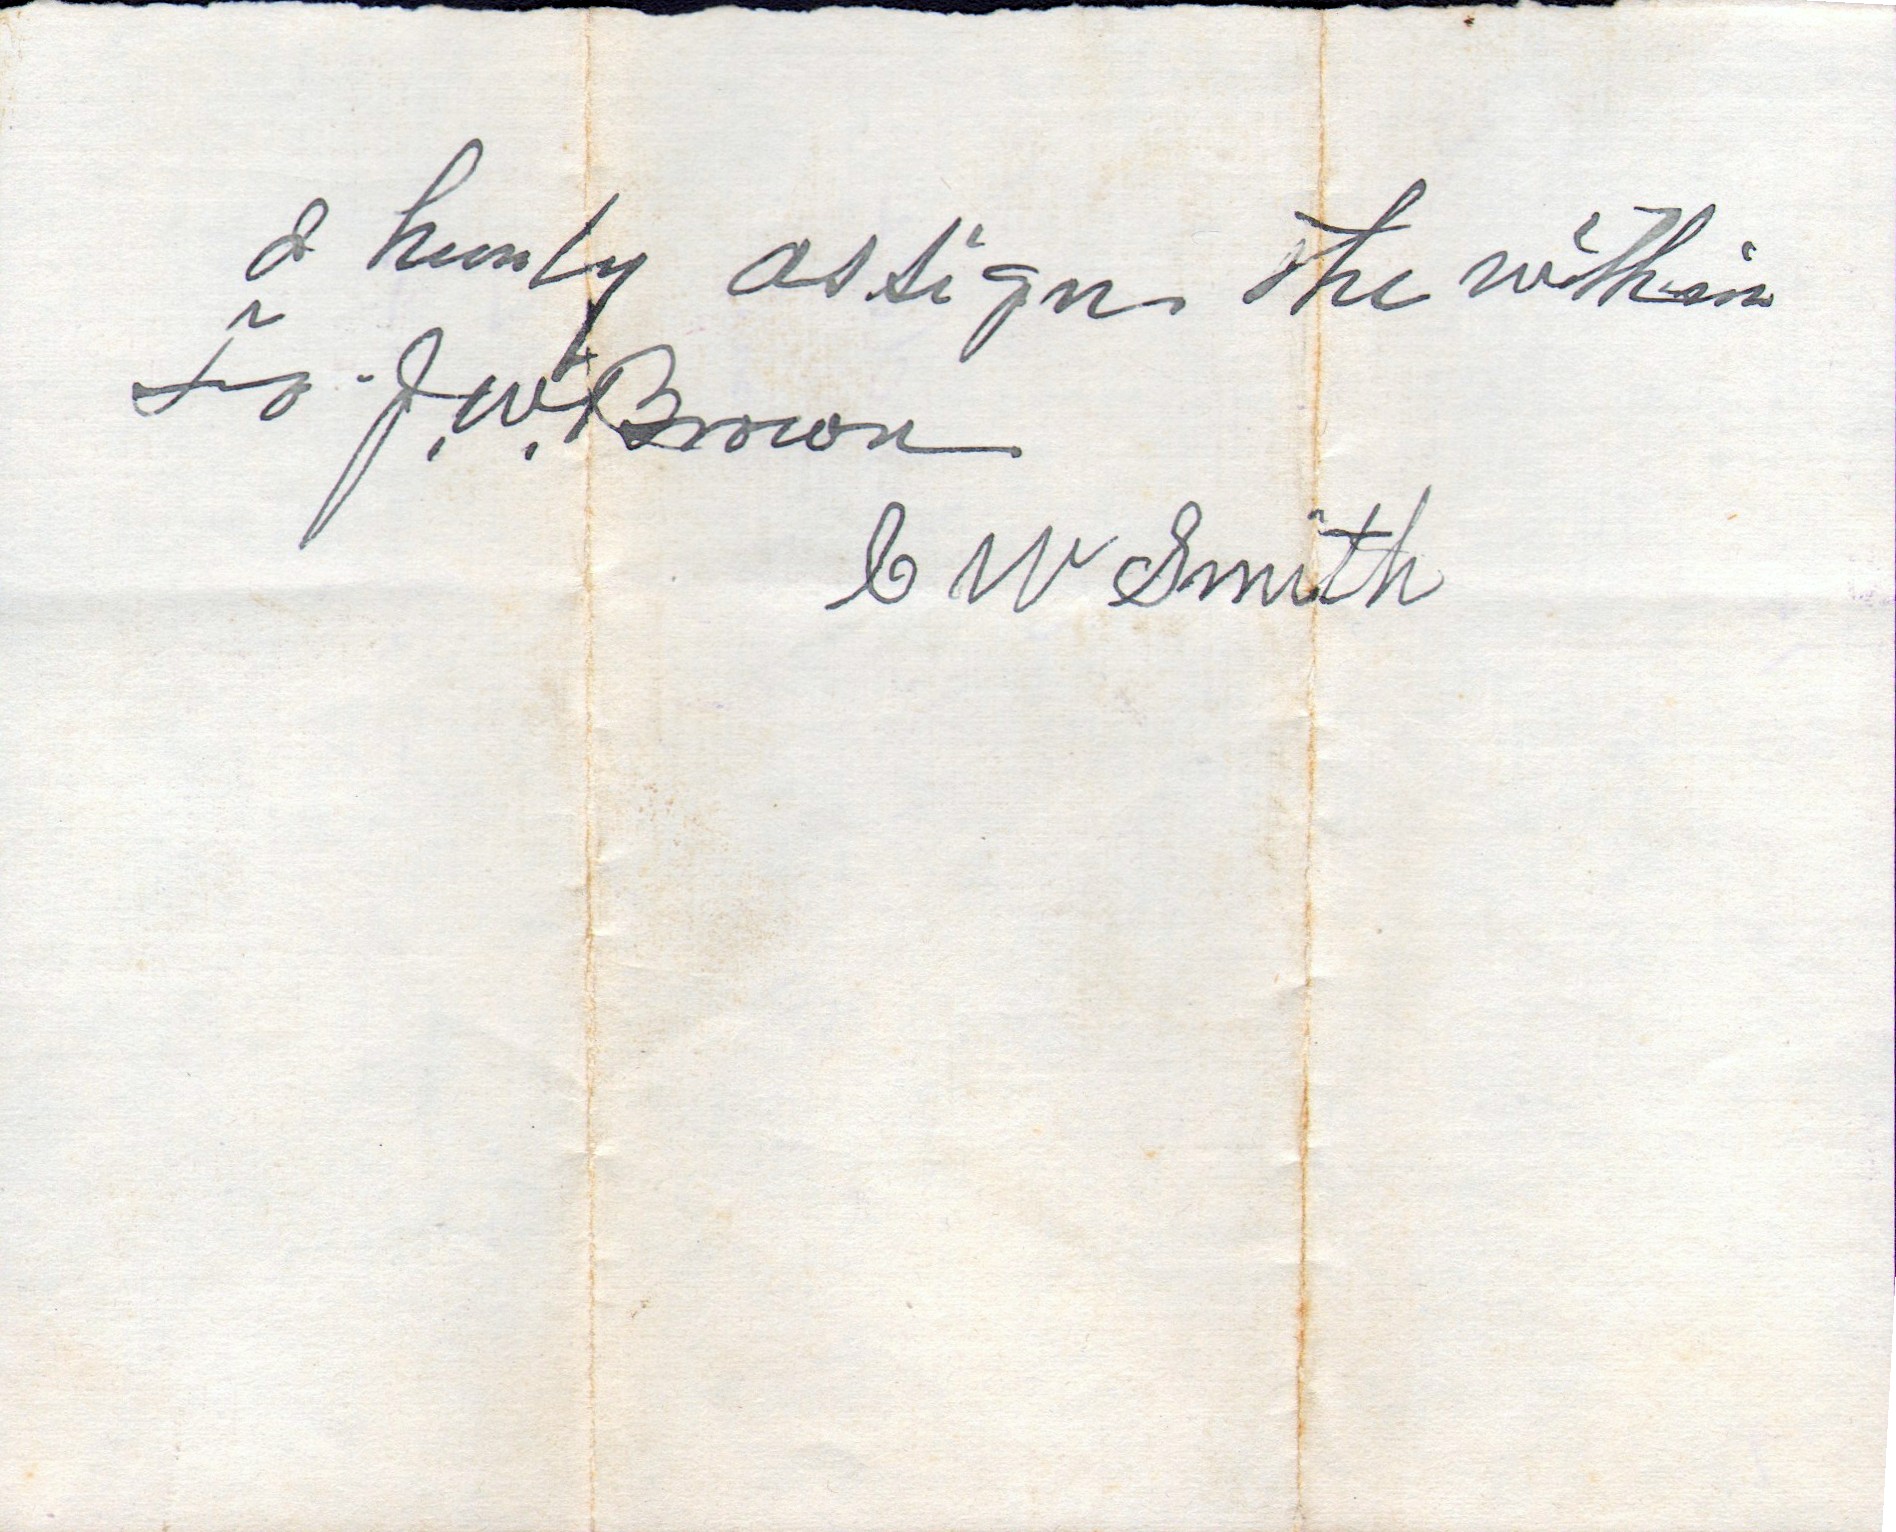 I hereby assign the within
to J.W. Brown
C W Smith